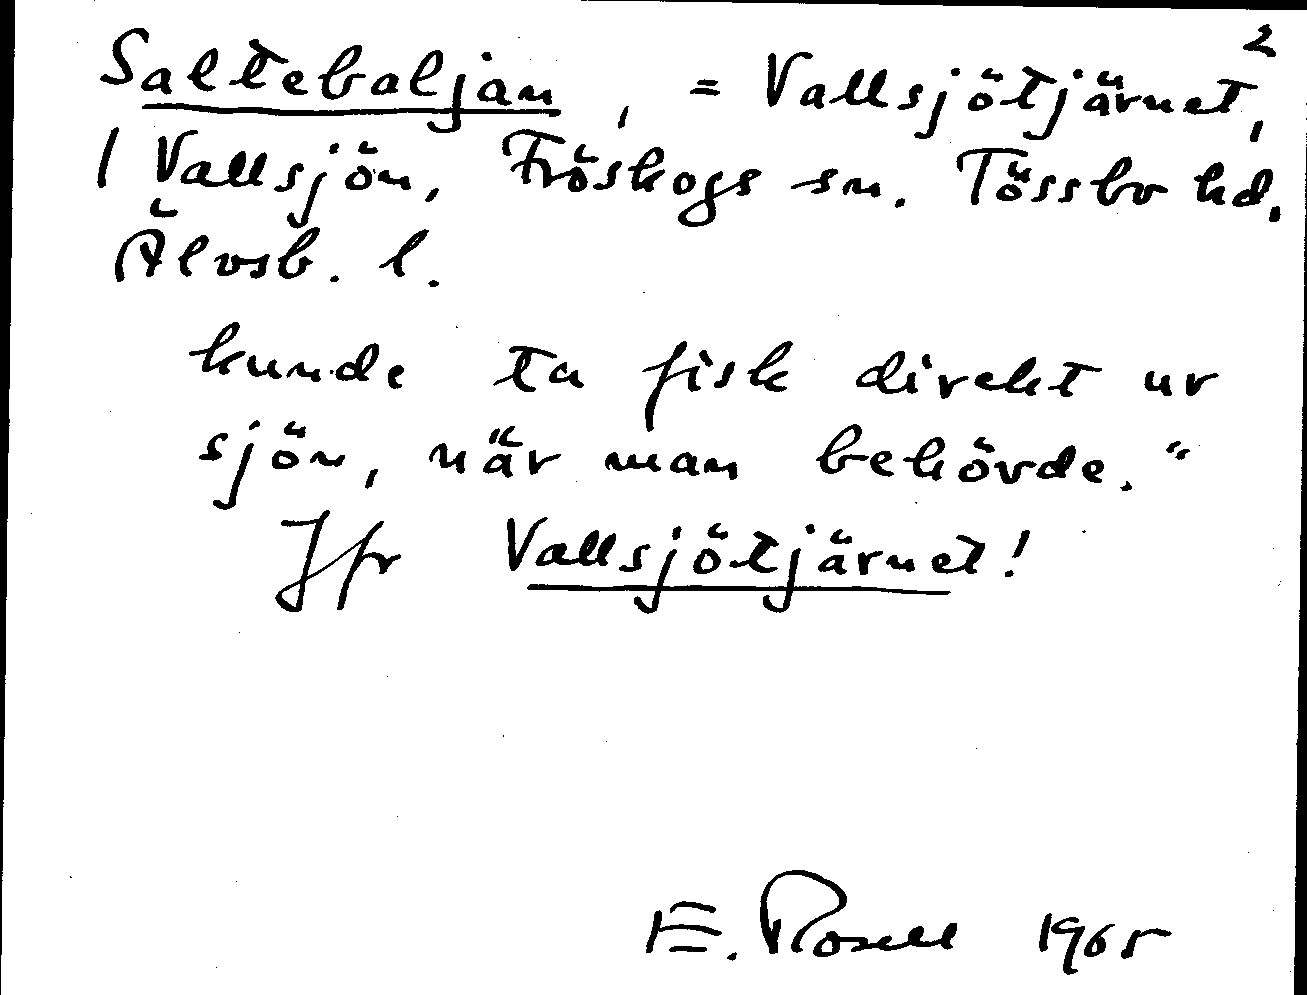 2
Saltebaljan, = Vallsjötjärnet,
/ Vallsjön, Fröskogs sn. Tössbo hd.
Älvsb. l.
kunde ta fisk direkt ur
sjön, när man behövde."
Jfr Vallsjötjärnet!
E. Rosell 1965